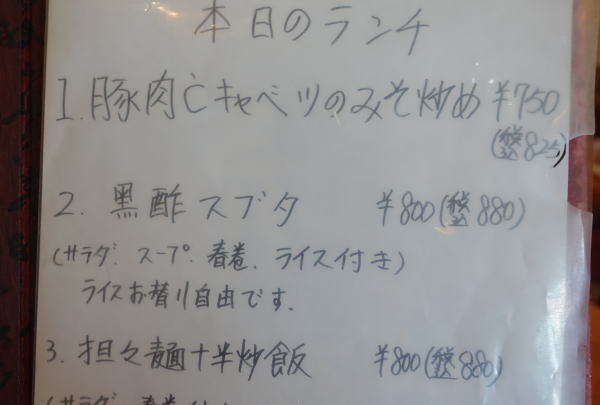 本日のランチ
1. 豚肉とキャベツのみそ炒め ¥750
(税込825)
2. 黒酢スブタ ¥800(税込880)
(サラダ、スープ、春巻、ライス付き)
ライスお替り自由です.
3. 担々麺+半炒飯 ¥800(税込880)